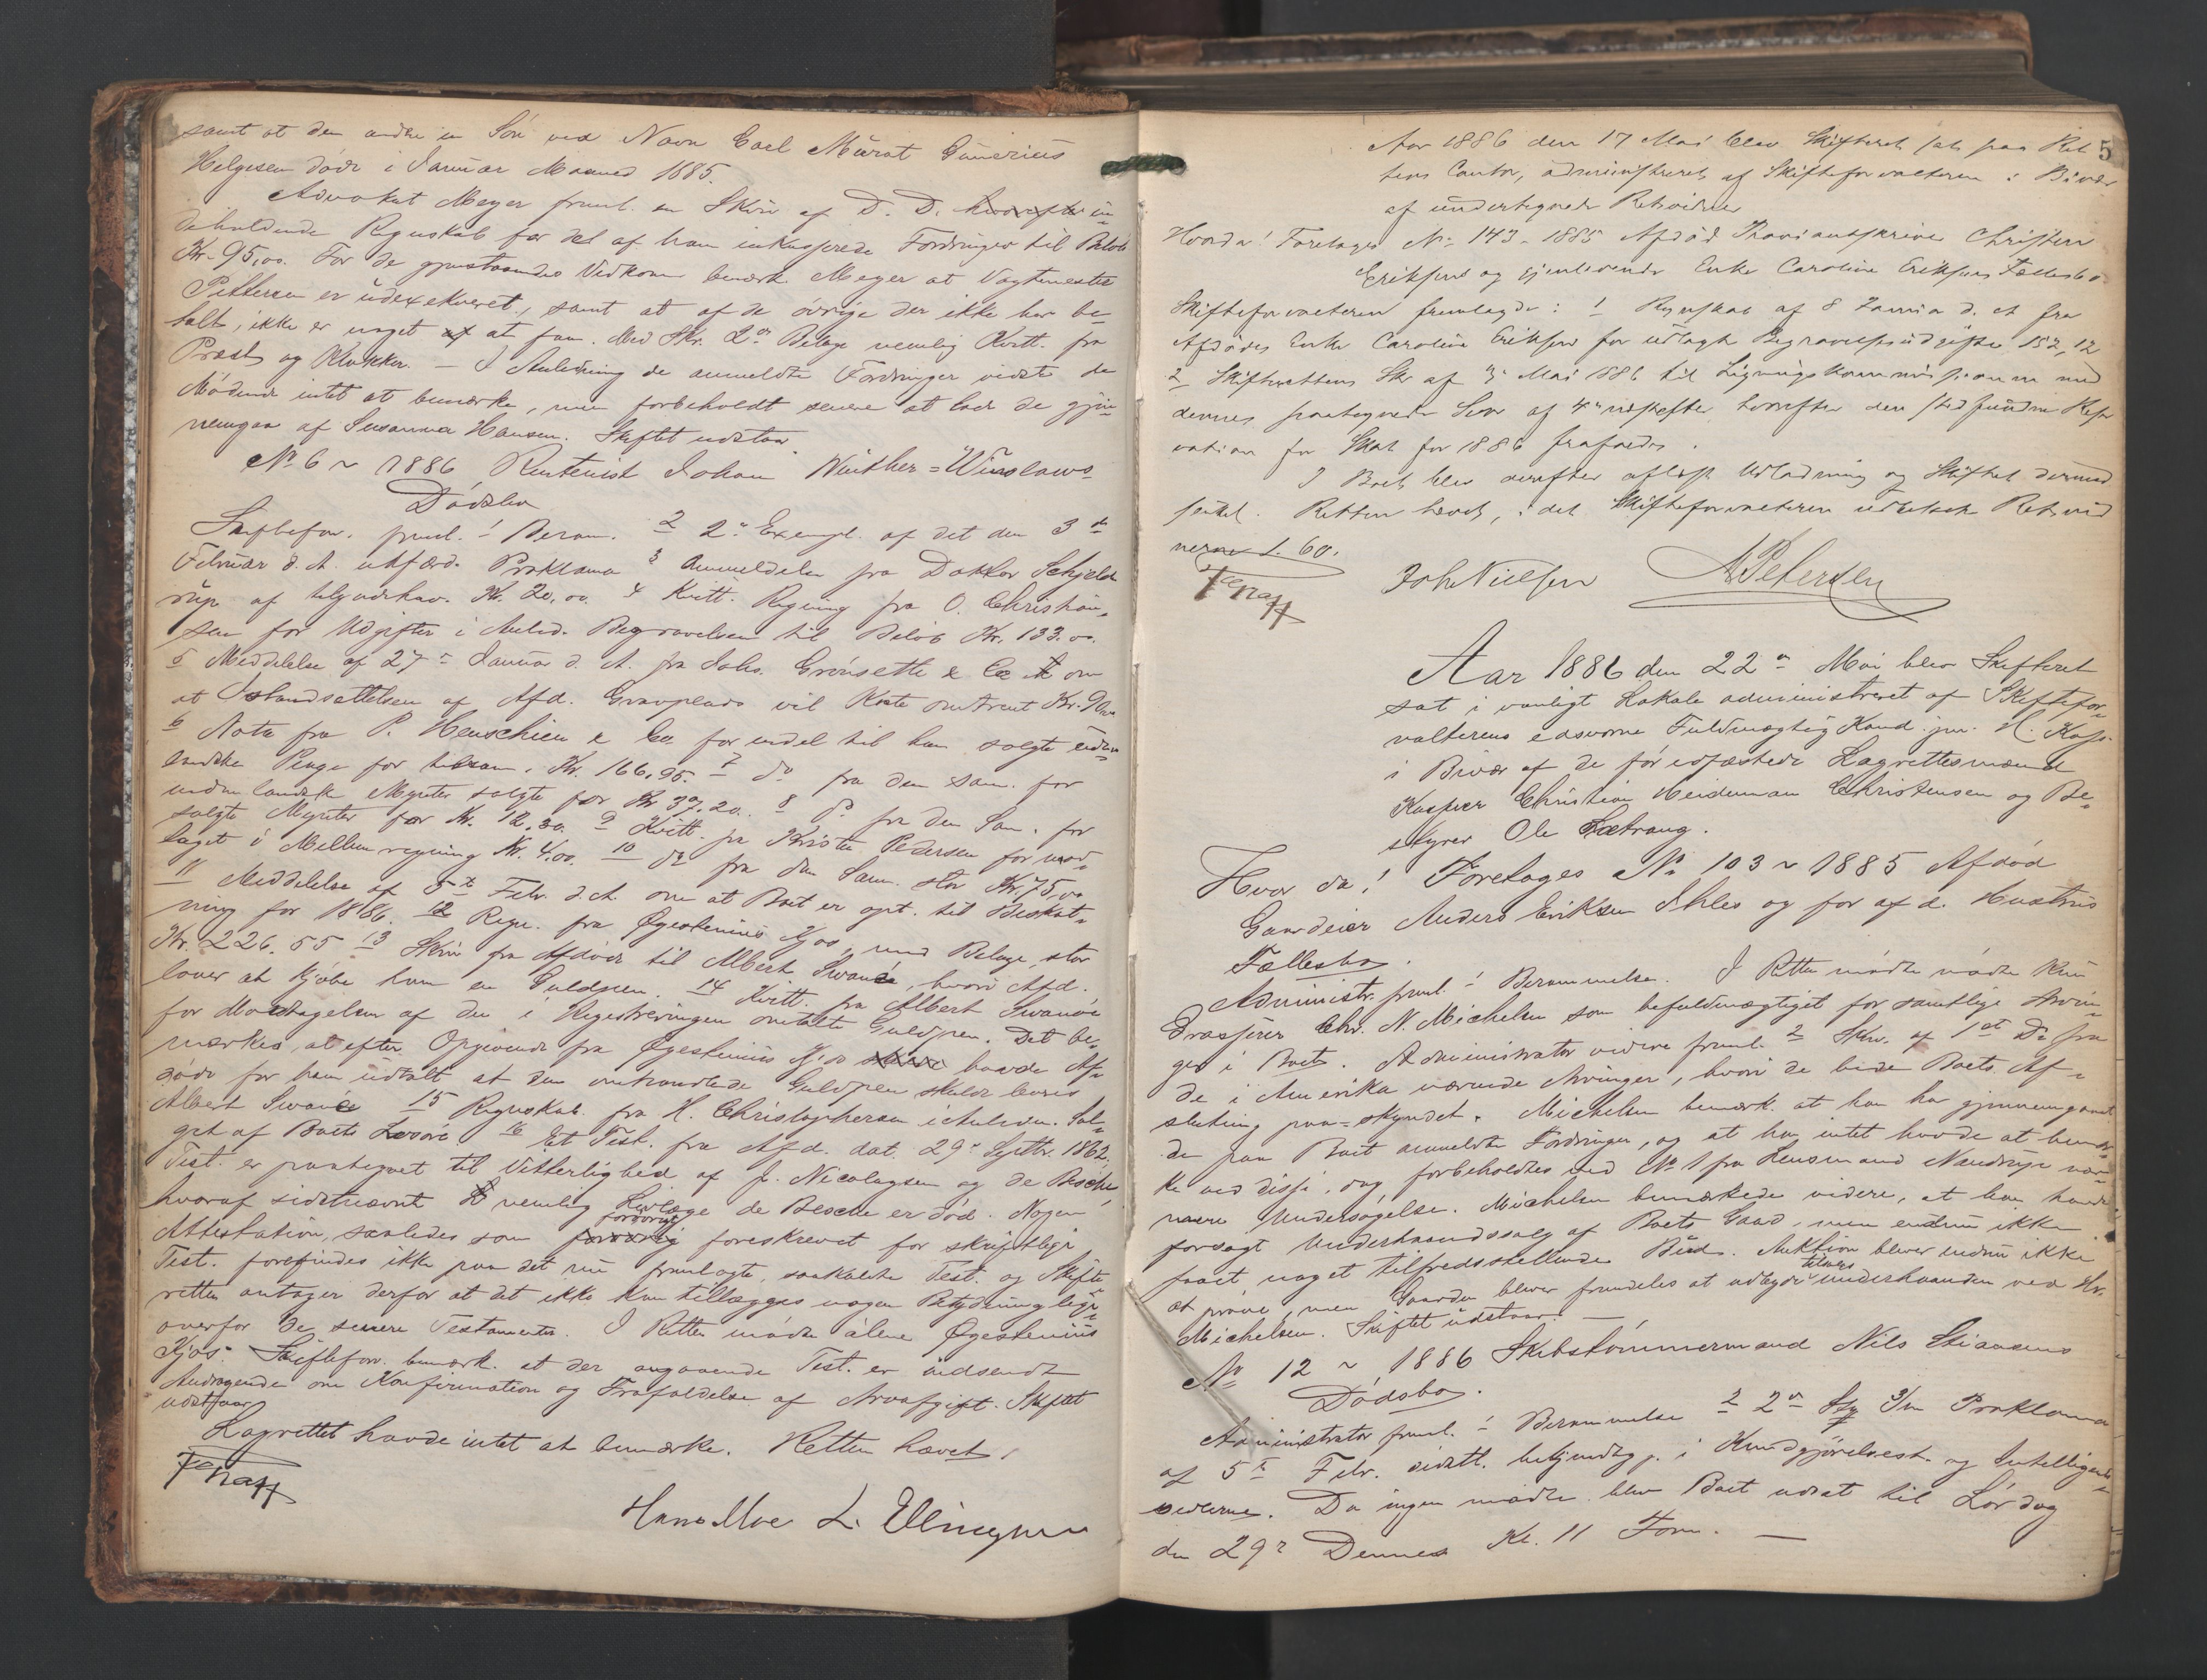 samt at den anden en Søn ved Navn Carl Mürat Gunerius
Helgesen døde i Januar Maaned 1885.
Advokat Meyer freml. en Skriv af D. D. hvorefter in-
deholdende Regnskab for del af ham inkasserede Fordringer til Beløb
Kr. 95,00. For de gjenstaaendes Vedkom. bemærk. Meyer at Vagtmester
Petterson er udexekveret, samt at af de øvrige der ikke har be-
talt, ikke er noget af at faa. Med Skr. 2de Bilage nemlig Kvitt. fra
Præst og Klokker. — I Anledning de anmeldte Fordringer vidste de
Mødende intet at bemærke, men forbeholdt senere at lade de gjen-
nemgaa af Susanna Hansen. Skiftet udstaar.
No 6 ~ 1886 Rentenist Johan Winther = Winslaws
Dødsbo
Skiftefor. freml. 1 Beram. 2 2de Exempl. af det den 3de
Februar d. A. udfærd. Proklama 3 Anmeldelse fra Doktor Schjelde-
rup af tilgodehav. Kr. 20,00. 4 Kvitt. Regning fra O. Christian-
sen for Udgifter i Anled. Begravelsen til Beløb Kr. 133.00.
5 Meddelelse af 27de Januar d. A. fra Johs. Grønseth & Co om
at Istandsættelsen af Afd. Gravplads vil koste omtrent Kr. 90,00
6 Nota fra P. Henschien & Co. for endel til ham solgte uden-
landske Penge for tilsam. Kr. 166,95. 7 do fra den sam. for
udenlandske Mynter solgte for Kr 37.20. 8 do fra den Sam. for
solgte Mynter for Kr. 12,30. 9 Kvitt. fra Kristen Pedersen for mod-
taget i Mellemregning Kr. 4.00. 10 do fra den Sam. stor Kr. 75,00
11 Meddelelse af 5te Febr. d. A. om at Boet er opt. til Beskat-
ning for 1886. 12 Regn. fra Øgestenius Kjos, med Bilage, stor
Kr. 226.55 13 Skriv fra Afdøde til Albert Swanøe, hvori Afd.
lover at kjøbe ham en Guldpen. 14 Kvitt. fra Albert Swanøe
for Modtagelsen af den i Registreringen omtalte Guldpen. Det be-
mærkes, at efter Opgivende fra Øgestenius Kjos havde Af-
døde for ham udtalt at den omhandlede Guldpen skulde leveres
Albert Swanøe 15 Regnskab fra H. Christophersen i Anledn. Sal-
get af Boets Løsøre 16 Et Test. fra Afd. dat. 29de Septbr. 1862.
Test. er paategnet til Vitterlighed af J. Nicolaysen og de Besche
hvoraf sidstnævnte nemlig Korlæge de Besche er død. Nogen
Attestation, saaledes som forøvrig forøvrigt foreskrevet for skriftlige
Test. forefindes ikke paa det nu fremlagte, saakaldte Test. og Skifte-
retten antager derfor at det ikke kan tillægges nogen Betydning lige-
overfor de senere Testamenter. I Retten mødte alene Øgestenius
Kjos. Skifteforv. bemærk. at der angaaende Test. er indsendt
Andragende om Konfirmation og Frafaldelse af Arvafgift. Skiftet
udstaar
Lagrettet havde intet at bemærke. Retten hævet.
Hans Moe L. Ellingsen
5
Aar 1886 den 17 Mai blev Skifteret sat paa Ret-
tens Contor, administreret af Skifteforvalteren i Bivær
af undertegnede Retsvidner
Hvorda! Foretoges No 143 - 1885 Afdød Proviantskriver Christen
Eriksens og gjenlevende Enke Caroline Eriksens Fællesbo
Skifteforvalteren fremlagde: 1 Regnskab af 8 Januar d. A. fra
Afdødes Enke Caroline Eriksen for udlagte Begravelsesudgifter 152,12
2 Skifterettens Skr af 3 Mai 1886 til Ligningskommissionen med
dennes paategnede Svar af 4de næstefter hvorefter den stedfundne Reser-
vation for Skat for 1886 frafaldes.
I Boet blev derefter aflagt Udlodning og Skiftet dermed
sluttet. Retten hævet, idet Skifteforvalteren udbetalte Retsvid-
nerne 1.60.
Joh Nielsen A Petersen
Aar 1886 den 22de Mai blev Skifteret
sat i vanligt Lokale administreret af Skiftefor-
valterens edsvorne Fuldmægtig Kand. jur. H. Kass
i Bivær af de før edfæstede Lagrettesmænd
Kasper Christian Heideman Christensen og Be-
styrer Ole Sætrang.
Hvor da! Foretoges No 103 ~ 1885 Afdød
Gaardeier Anders Eriksen Ihles og før afd. Hustrus
Fællesbo.
Administr. freml. 1 Berammelse. I Retten mødte mødte Kun
Prosjører Chr. N. Michelsen som befuldmægtiget for samtlige Arvin-
ger i Boet. Administrator videre freml. 2 Skr. af 1ste Ds fra
de i Amerika værende Arvinger, hvori de bede Boets Af-
slutning paa-skyndet. Michelsen bemærk. at han har gjennemgaaet
de paa Boet anmeldte Fordringer, og at han intet havde at bemær-
ke ved disse, dog forbeholdtes ved No 1 fra Lensmand Nandrup nær-
mere Undersøgelse. Michelsen bemærkede videre, at han havde
forsøgt Underhaandssalg af Boets Gaard, men endnu ikke
faaet noget tilfredsstillende Bud. Auktion bliver endnu ikke
at prøve, men Gaarden bliver fremdeles at udbyde tilsalgs underhaanden ved Hr.
Michelsen. Skiftet udstaar. —
No 12 ~ 1886 Skibstømmermand Nils Stiansens
Dødsbo.
Administrator freml. 1 Berammelse 2 2de Proklama
af 5te Febr. sidstl. bekjendtgj. i Kundgjørelsest. og Intelligents-
sedlerne. Da ingen mødte blev Boet udsat til Lørdag
den 29de Dennes Kl. 11 Form. —